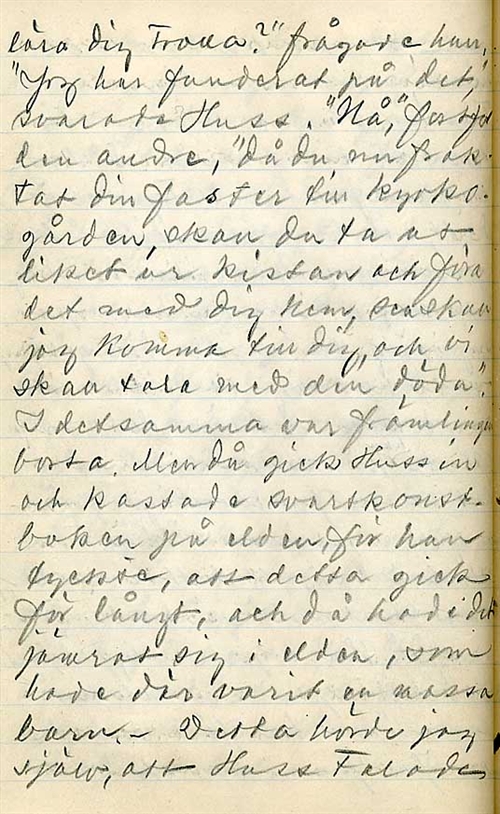 lära dig trolla?" frågade han.
"Jag har funderat på det,"
svarade Huss. "Nå," fortsför
den andre, "då du nu frak-
tat din faster till kyrko-
gården, skall du ta ut
liket ur kistan och föra
det med dig hem, sen skall
jag komma till dig, och vi
skall tala med den döda".
I detsamma var främlingen
borta. Men då gick Huss in
och kastade svartkonst-
boken på elden, för han
tyckte, att detta gick
för långt, och då hade det
jämrat sig i elden, som
hade där varit en massa
barn. – Detta hörde jag
själv, att Huss talade